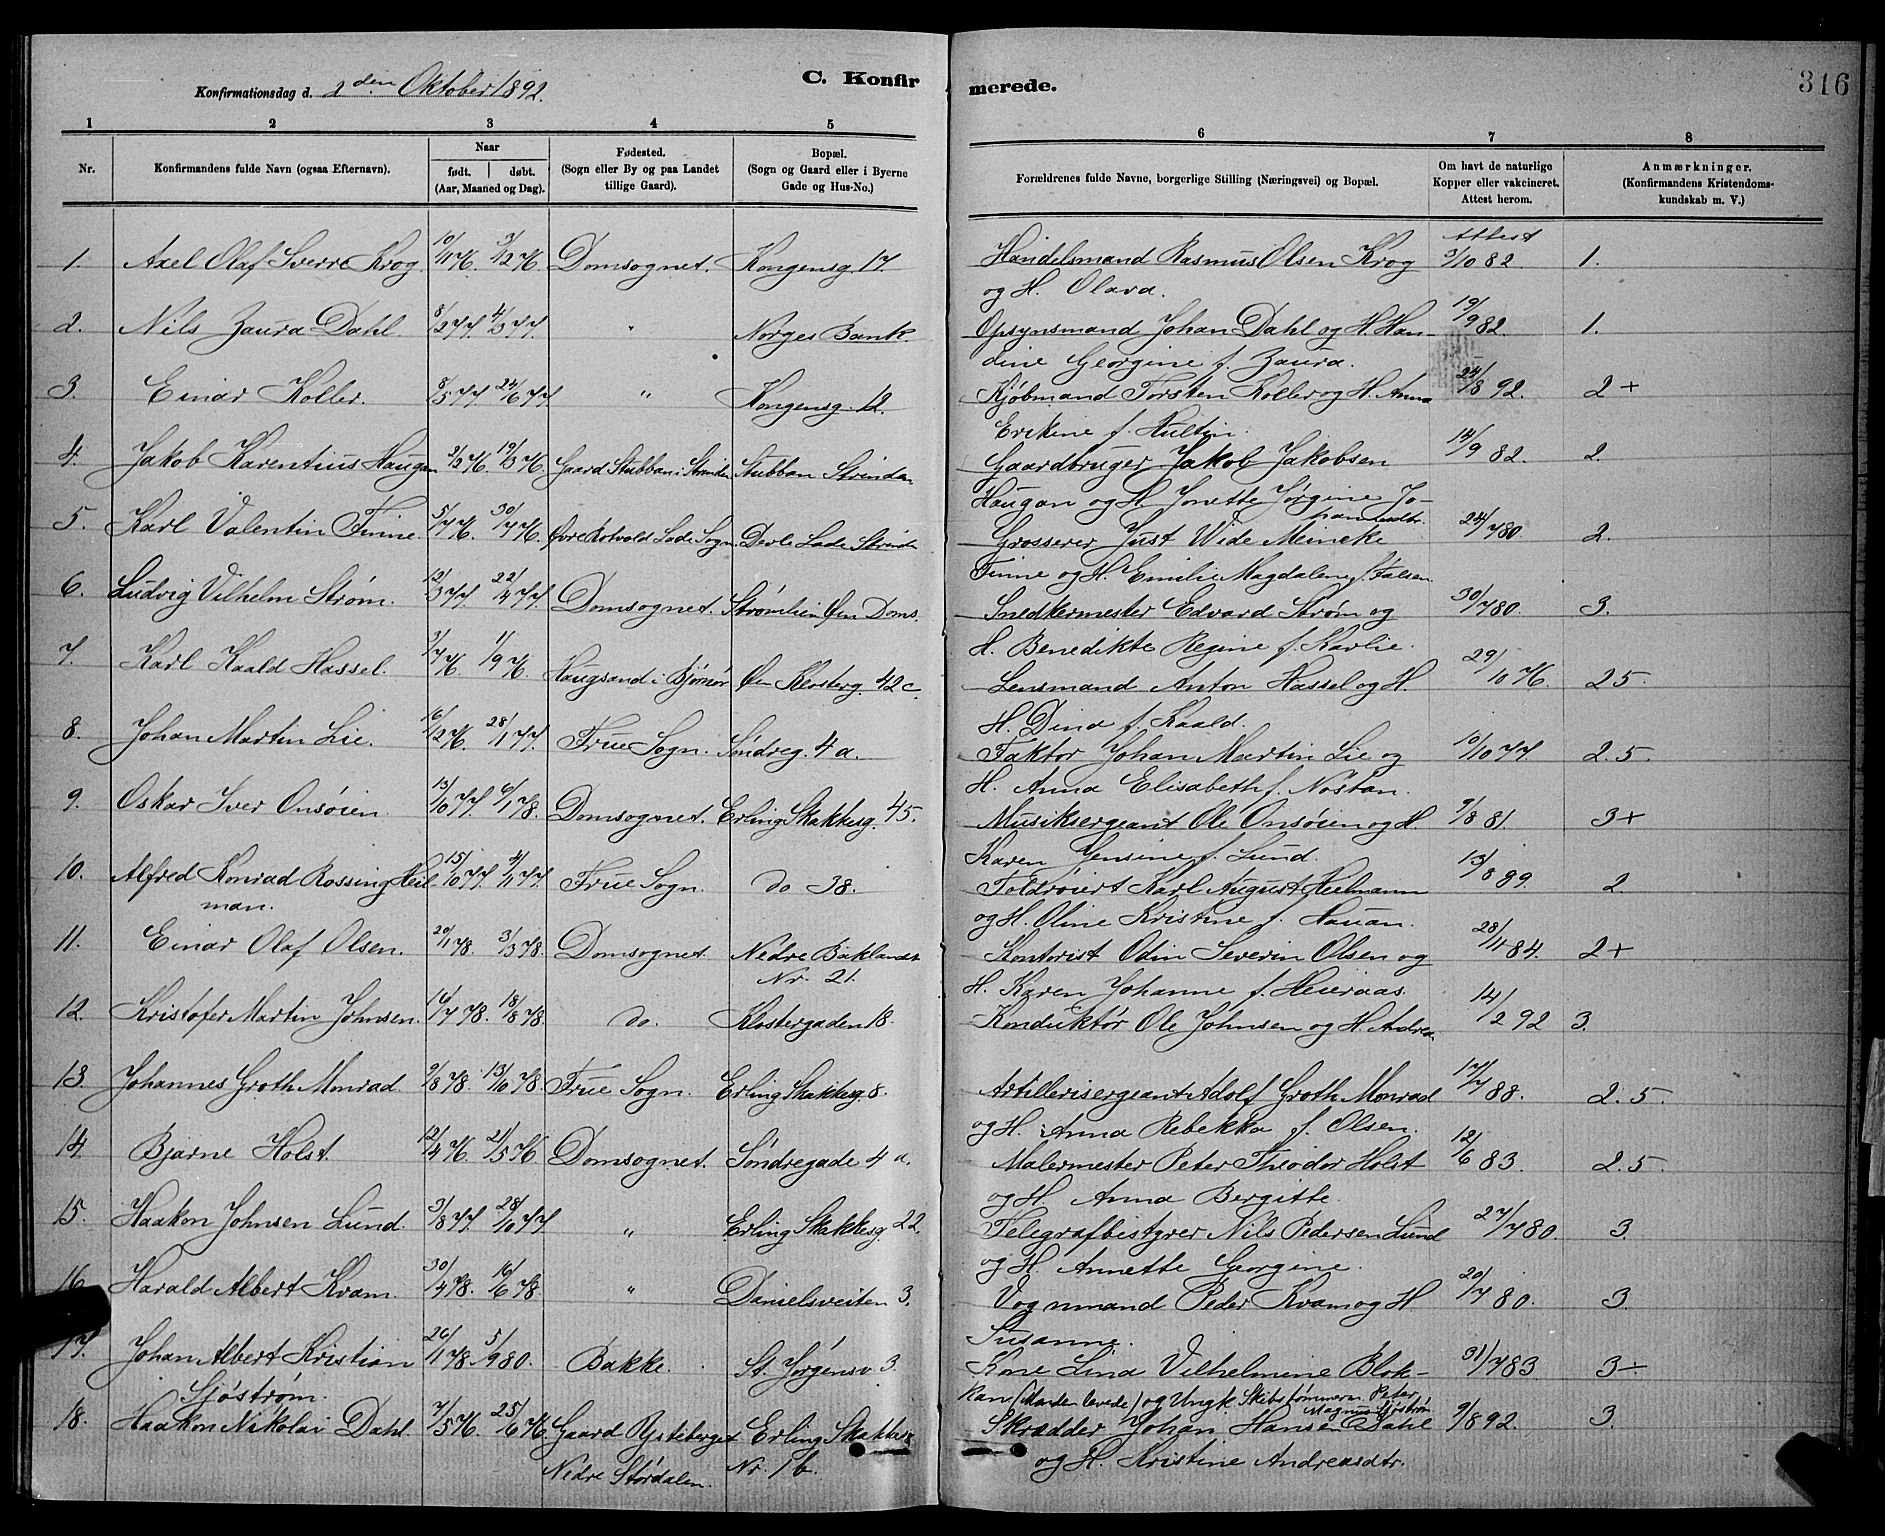 Konfirmationsdag d. 2den Oktober 1892.
C. Konfirmerede.
316
1 2 3 4 5 6 7 8
Nr.
Konfirmandens fulde Navn (ogsaa Efternavn).
Naar
født. døbt.
(Aar, Maaned og Dag).
Fødested.
(Sogn eller By og paa Landet
tillige Gaard).
Bopæl.
(Sogn og Gaard eller i Byerne
Gade og Hus-No.)
Forældrenes fulde Navne, borgerlige Stilling (Næringsvei) og Bopæl.
Om havt de naturlige
Kopper eller vakcineret.
Attest herom.
Anmærkninger.
(Konfirmandens Kristendoms-
kundskab m. V.)
Attest
1. Axel Olaf Sverre Krog. 10/1 76. 3/2 76. Domsognet. Kongensg. 17. Handelsmand Rasmus Olsen Krog 3/10 82. 1.
og H. Olava.
2. Nils Zaura Dahl. 8/2 77. 4/3 77. " Norges Bank Opsynsmand Johan Dahl og H. Han- 19/9 82. 1.
dine Georgine f. Zaura.
3. Einar Koller. 8/5 77. 24/6 77. " Kongensg. 12. Kjøbmand Torsten Koller og H. Anna 24/8 92. 2+
Erikine f. Hultin.
4. Jakob Karentius Haugan 2/3 76. 19/3 76. Gaard Stubban i Strinden Stubban Strinden Gaardbruger Jakob Jakobsen 14/9 82. 2.
Haugan og H. Jonette Jørgine Jo-
hannesdtr.
5. Karl Valentin Finne. 5/7 76. 30/7 76. Øvre Rotvold Lade Sogn. Devle Lade Strinden Grosserer Just Wide Meincke 24/7 80 2.
Finne og H. Emilie Magdalene f. Falsen.
6. Ludvig Vilhelm Strøm. 12/3 77. 22/4 77. Domsognet. Strømlien Øen Doms. Snedkermester Edvard Strøm og 30/7 80. 3.
H. Benedikte Regine f. Kavlie.
7. Karl Kaald Hassel. 3/7 76. 1/9 76. Haugsand i Bjørnør Øen Klosterg. 42 c. Lensmand Anton Hassel og H. 29/10 76. 2 5.
H. Dina f. Kaald.
8. Johan Martin Lie. 16/12 76. 28/1 77. Frue Sogn. Søndreg. 4 a. Faktor Johan Martin Lie og 10/10 77. 2. 5.
H. Anna Elisabeth f. Nøstan.
9. Oskar Iver Onsøien. 13/10 77. 6/1 78. Domsognet. Erling Skakkesg. 45. Musiksergeant Ole Onsøien og H. 9/8 81. 3+
Karen Jensine f. Lund.
10. Alfred Konrad Rossing Heil 15/10 77. 4/11 77. Frue Sogn. do 38. Toldroiert Karl August Heilmann 13/8 89. 2
man.
og H. Oline Kristine f. Hauan.
11. Einar Olaf Olsen. 20/1 78. 3/3 78. Domsognet. Nedre Baklandet Kontorist Odin Severin Olsen og 28/11 84. 2+
Nr. 21.
H. Karen Johanne f. Heieraas.
12. Kristofer Martin Johnsen. 16/7 78. 18/8 78. do. Klostergaden 18. Konduktør Ole Johnsen og H. Andrea. 14/2 92 3.
13. Johannes Groth Monrad 9/8 78. 13/10 78. Frue Sogn. Erling Skakkesg. 8. Artillerisergeant Adolf Groth Monrad 17/7 88. 2. 5.
og H. Anna Rebekka f. Olsen.
14. Bjarne Holst. 12/4 76. 21/5 76 Domsognet. Søndregade 4 a. Malermester Peter Theodor Holst 12/6 83. 2. 5.
og H. Anna Bergitte.
15. Haakon Johnsen Lund. 3/8 77. 28/10 77 " Erling Skakkesg. 22. Telegrafbestyrer Nils Pedersen Lund 27/7 80. 3.
og H. Annette Georgine.
16. Harald Albert Kvam. 30/4 78. 16/6 78. " Danielsveiten 3. Vognmand Peder Kvam og H 20/7 80. 3.
Susanne.
17. Johan Albert Kristian 26/1 78. 5/9 80. Bakke. St. Jørgensv 3. Kone Lina Vilhelmine Blok- 31/7 83 3-
Sjøstrøm.
kan (Manden levede) og Ungk. Skibstømmerm. Peter
Magnus Sjøstrøm
18. Haakon Nikolai Dahl. 7/5 76. 25/6 76 Gaard Ysteberget Erling Skakkesg Skrædder Johan Hansen Dahl 9/8 92. 3.
Nedre Stordalen. Nr. 1 b. og H. Kristine Andreasdtr.